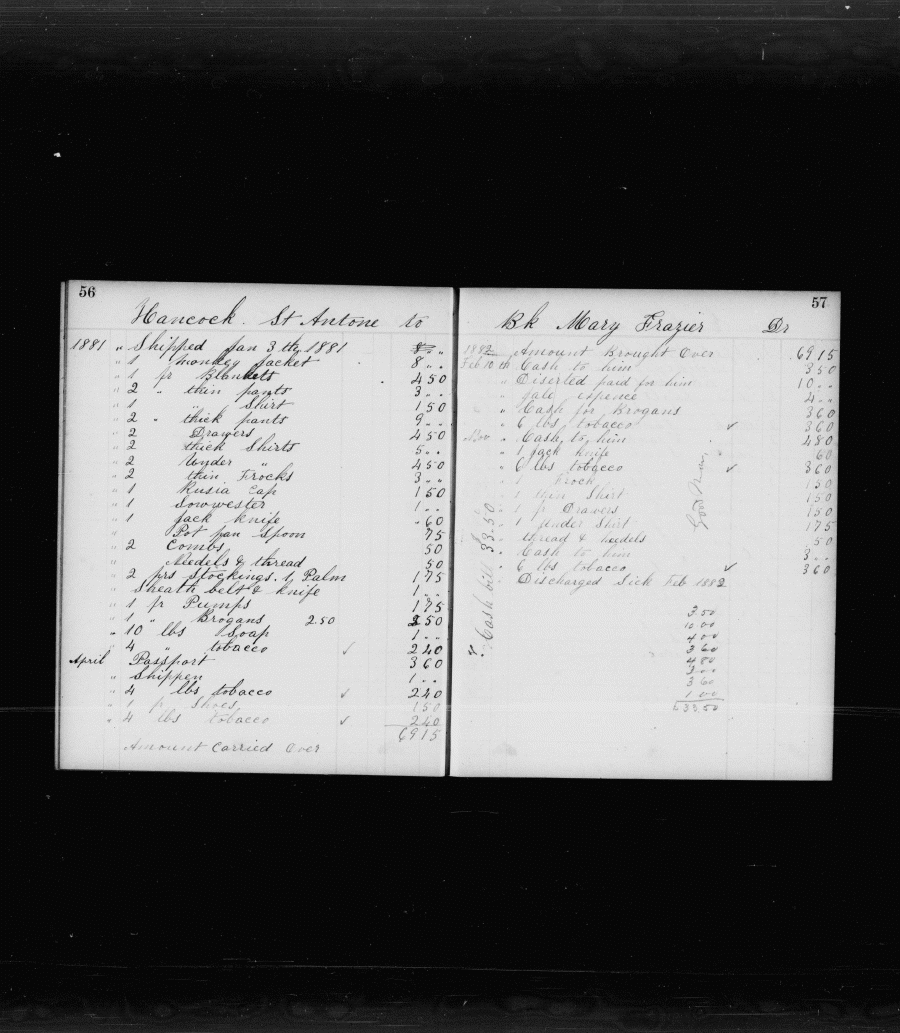 56
Hancock. St Antone to
1881 " Shipped Jan 3 th 1881
" 1 monkey Jacket 8 " "
" 1 pr Blankets 4 50
" 2 " thin pants 3 " "
" 1 " Shirt 1 50
" 2 " thick pants 9 " "
" 2 Drawers 4 50
" 2 thick Shirts 5 " "
" 2 Under " 4 50
" 2 thin Frocks 3 " "
" 1 Rusia Cap 1 50
" 1 Sowwester 1 " "
" 1 Jack knife " 60
" Pot pan Spoon 75
" 2 Combs 50
" Nedels & thread 50
" 2 prs Stockings. & Palm 1 75
" Sheath belt & knife 1 " "
" 1 pr Pumps 1 75
" 1 " Brogans 2.50 2 50
" 10 lbs Soap 1 " "
" 4 " tobacco ✓ 2 40
April Passport 3 60
" Shippen 1 " "
" 4 lbs tobacco ✓ 2 40
" 1 pr Shoes 1 50
" 4 lbs tobacco ✓ 2 40
69 15
Amount Carried Over
57
Bk Mary Frazier Dr
1882 Amount Brought Over 69 15
Feb 10 th Cash to him 3 50
" Diserted paid for him 10 " "
" Jale expence 4 " "
" Cash for Brogans 3 60
" 6 lbs tobacco ✓ 3 60
Nov " Cash to him 4 80
" 1 Jack knife 60
" 6 lbs tobacco ✓ 3 60
" 1 Frock 1 50
" 1 thin Shirt 1 50
" 1 pr Drawers 1 50
" 1 under Shirt 1 75
" thread & Needels 50
" Cash to him 3 " "
" 6 lbs tobacco ✓ 3 60
" Discharged Sick Feb 1882
Cash bill 33.50
3 50
10 00
4 00
3 60
4 80
3 00
3 60
1 00
$33 50